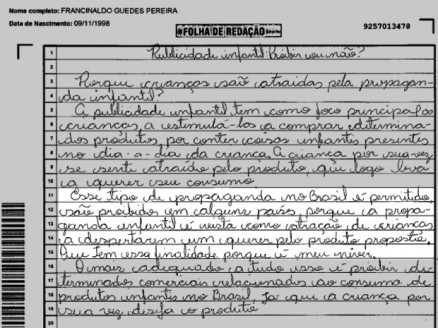 Nome completo: FRANCINALDO GUEDES PEREIRA
Data de Nascimento: 09/11/1998
FOLHA DE REDAÇÃO
9257013478
1 Publicidade infantil: Proibir ou não?
2
3 Porque crianças são atraídas pela propagan-
4 da infantil?
5 A publicidade infantil tem como foco principal as
6 crianças, a estimulá-las a comprar determina-
7 dos produtos, por conter coisas infantis presentes
8 no dia-a-dia da criança. A criança por sua vez
9 se sente atraído pelo produto, que logo leva
10 a querer seu consumo.
11 Esse tipo de propaganda no Brasil é permitido,
12 são proibido em alguns país, porque a propa-
13 ganda infantil é vista como atração de crianças
14 a despertarem um querer pelo produto proposto.
15 Que tem essa finalidade porque é meu
16 O mais adequado a tudo isso é proibir, de-
17 terminados comerciais relacionados ao consumo de
18 produtos infantis no Brasil, já que a criança por
19 sua vez, deseja o produto
20